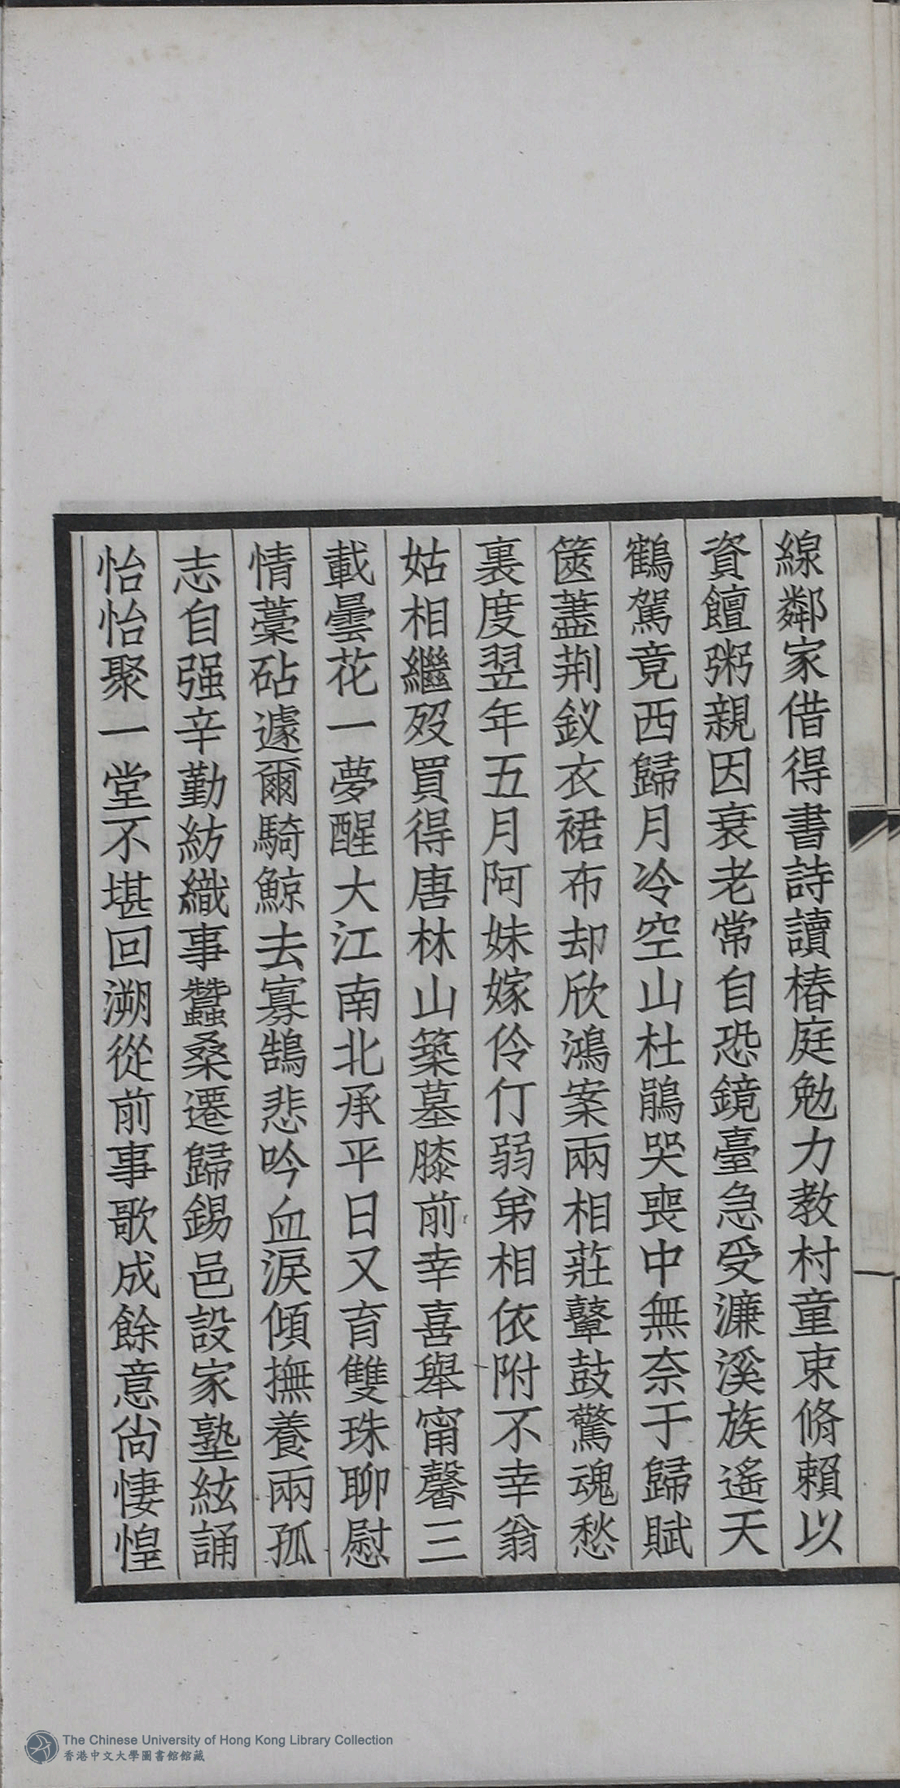 線鄰家借得書詩讀椿庭勉力教村童束脩賴以
資饘粥親因衰老常自恐鏡臺急受濂溪族遙天
鶴駕竟西歸月冷空山杜鵑哭喪中無奈于歸賦
篋藎荆釵衣裙布却欣鴻案兩相莊鼙鼓驚魂愁
裏度翌年五月阿妹嫁伶仃弱弟相依附不幸翁
姑相繼歿買得唐林山築墓膝前幸喜舉甯馨三
載曇花一夢醒大江南北承平日又育雙珠聊慰
情藁砧遽爾騎鯨去寡鵠悲吟血淚傾撫養兩孤
志自强辛勤紡織事蠶桑遷歸錫邑設家塾絃誦
怡怡聚一堂不堪回溯從前事歌成餘意尙悽惶
The Chinese University of Hong Kong Library Collection
香港中文大學圖書館館藏